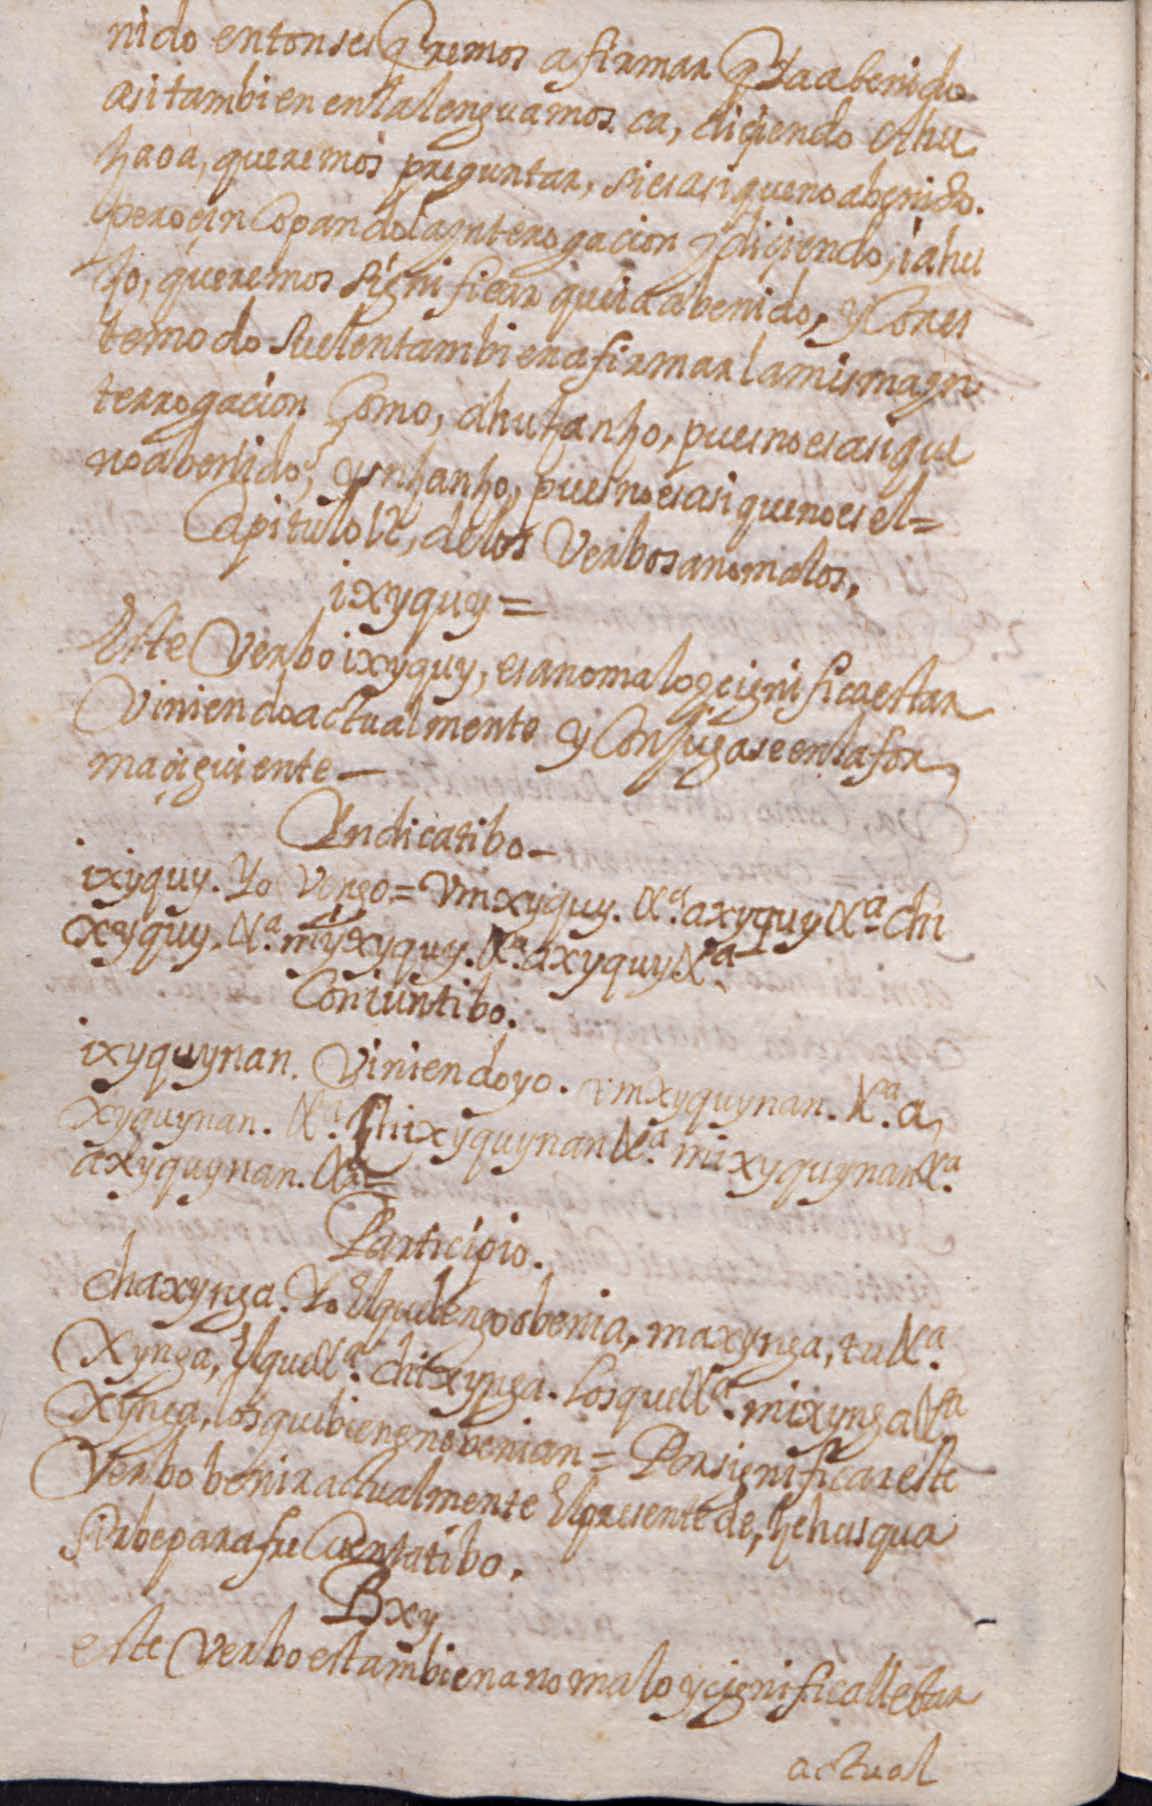 nido entonses qremos afirmar q Ya a benido
asi tambien en la lengua mosca, diçiendo ahu
haoa, queremos preguntar, si es asi que no a benido.
pero sincopando la ynterogacion y diçiendo, iahu
ho, queremos significar que ia a benido, y Con es
te modo suelen tambien afirmar la misma yn
terrogacion Como, ahuhanho, pues no es asi que
no a benido, y snhanho, pues no es asi que no es el =
Capitulo 12, de los Verbos anomalos,
ixyquy =
Este Verbo ixyquy, es anomalo y çignifica estar
Viniendo actualmente y Conjugase en la for
ma çiguiente —
Yndicatibo —
ixyquy. Yo Vengo = Vmxyquy. &a. axyquy &a chi
xyquy. &a. mixyquy. &a axyquy &a —
Coniuntibo.
ixyquynan. Viniendo yo. vmxyquynan. &a. a
xyquynan. &a. Chixyquynan &a. mixyquynan &a.
axyquynan. &a =
Participio.
chaxynga. Yo El que bengo o benia, maxynga, tu &a.
Xynga, El que &a. chixynga. los que &a. mixynga &a
Xynga, los que bienen o venian = Por significar este
Verbo benir actualmente El presente de, hehusqua
Sirbe para frecuentatibo.
Bxy
este Verbo es tambien anomalo y çignifica llebar
actual